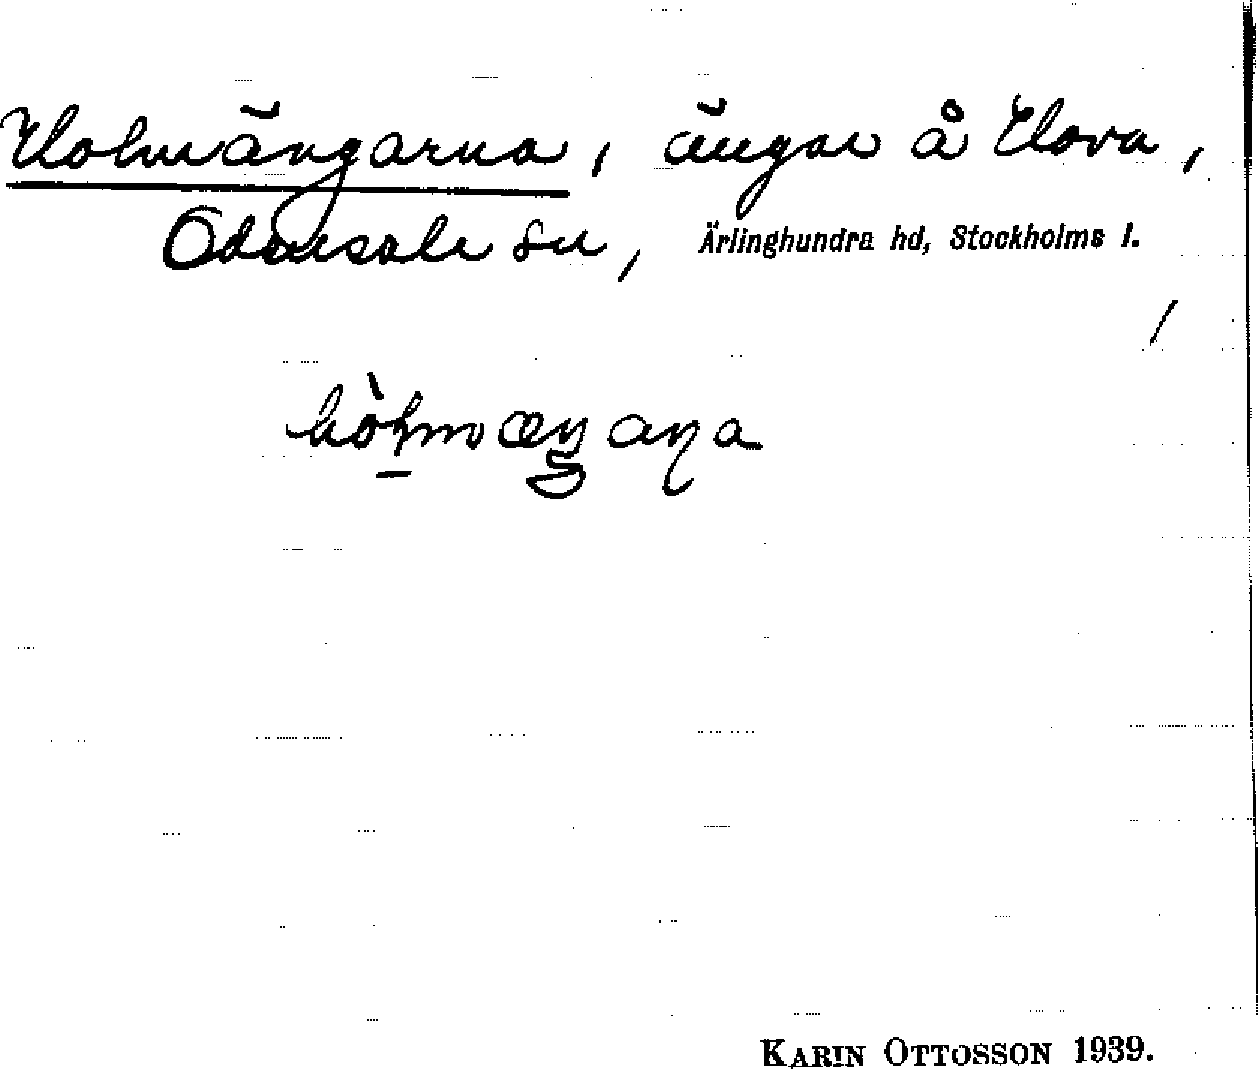 Holmängarna, ängar å Hova,
Odensala sn, Ärlinghundra hd, Stockholms l.
KARIN OTTOSSON 1939.